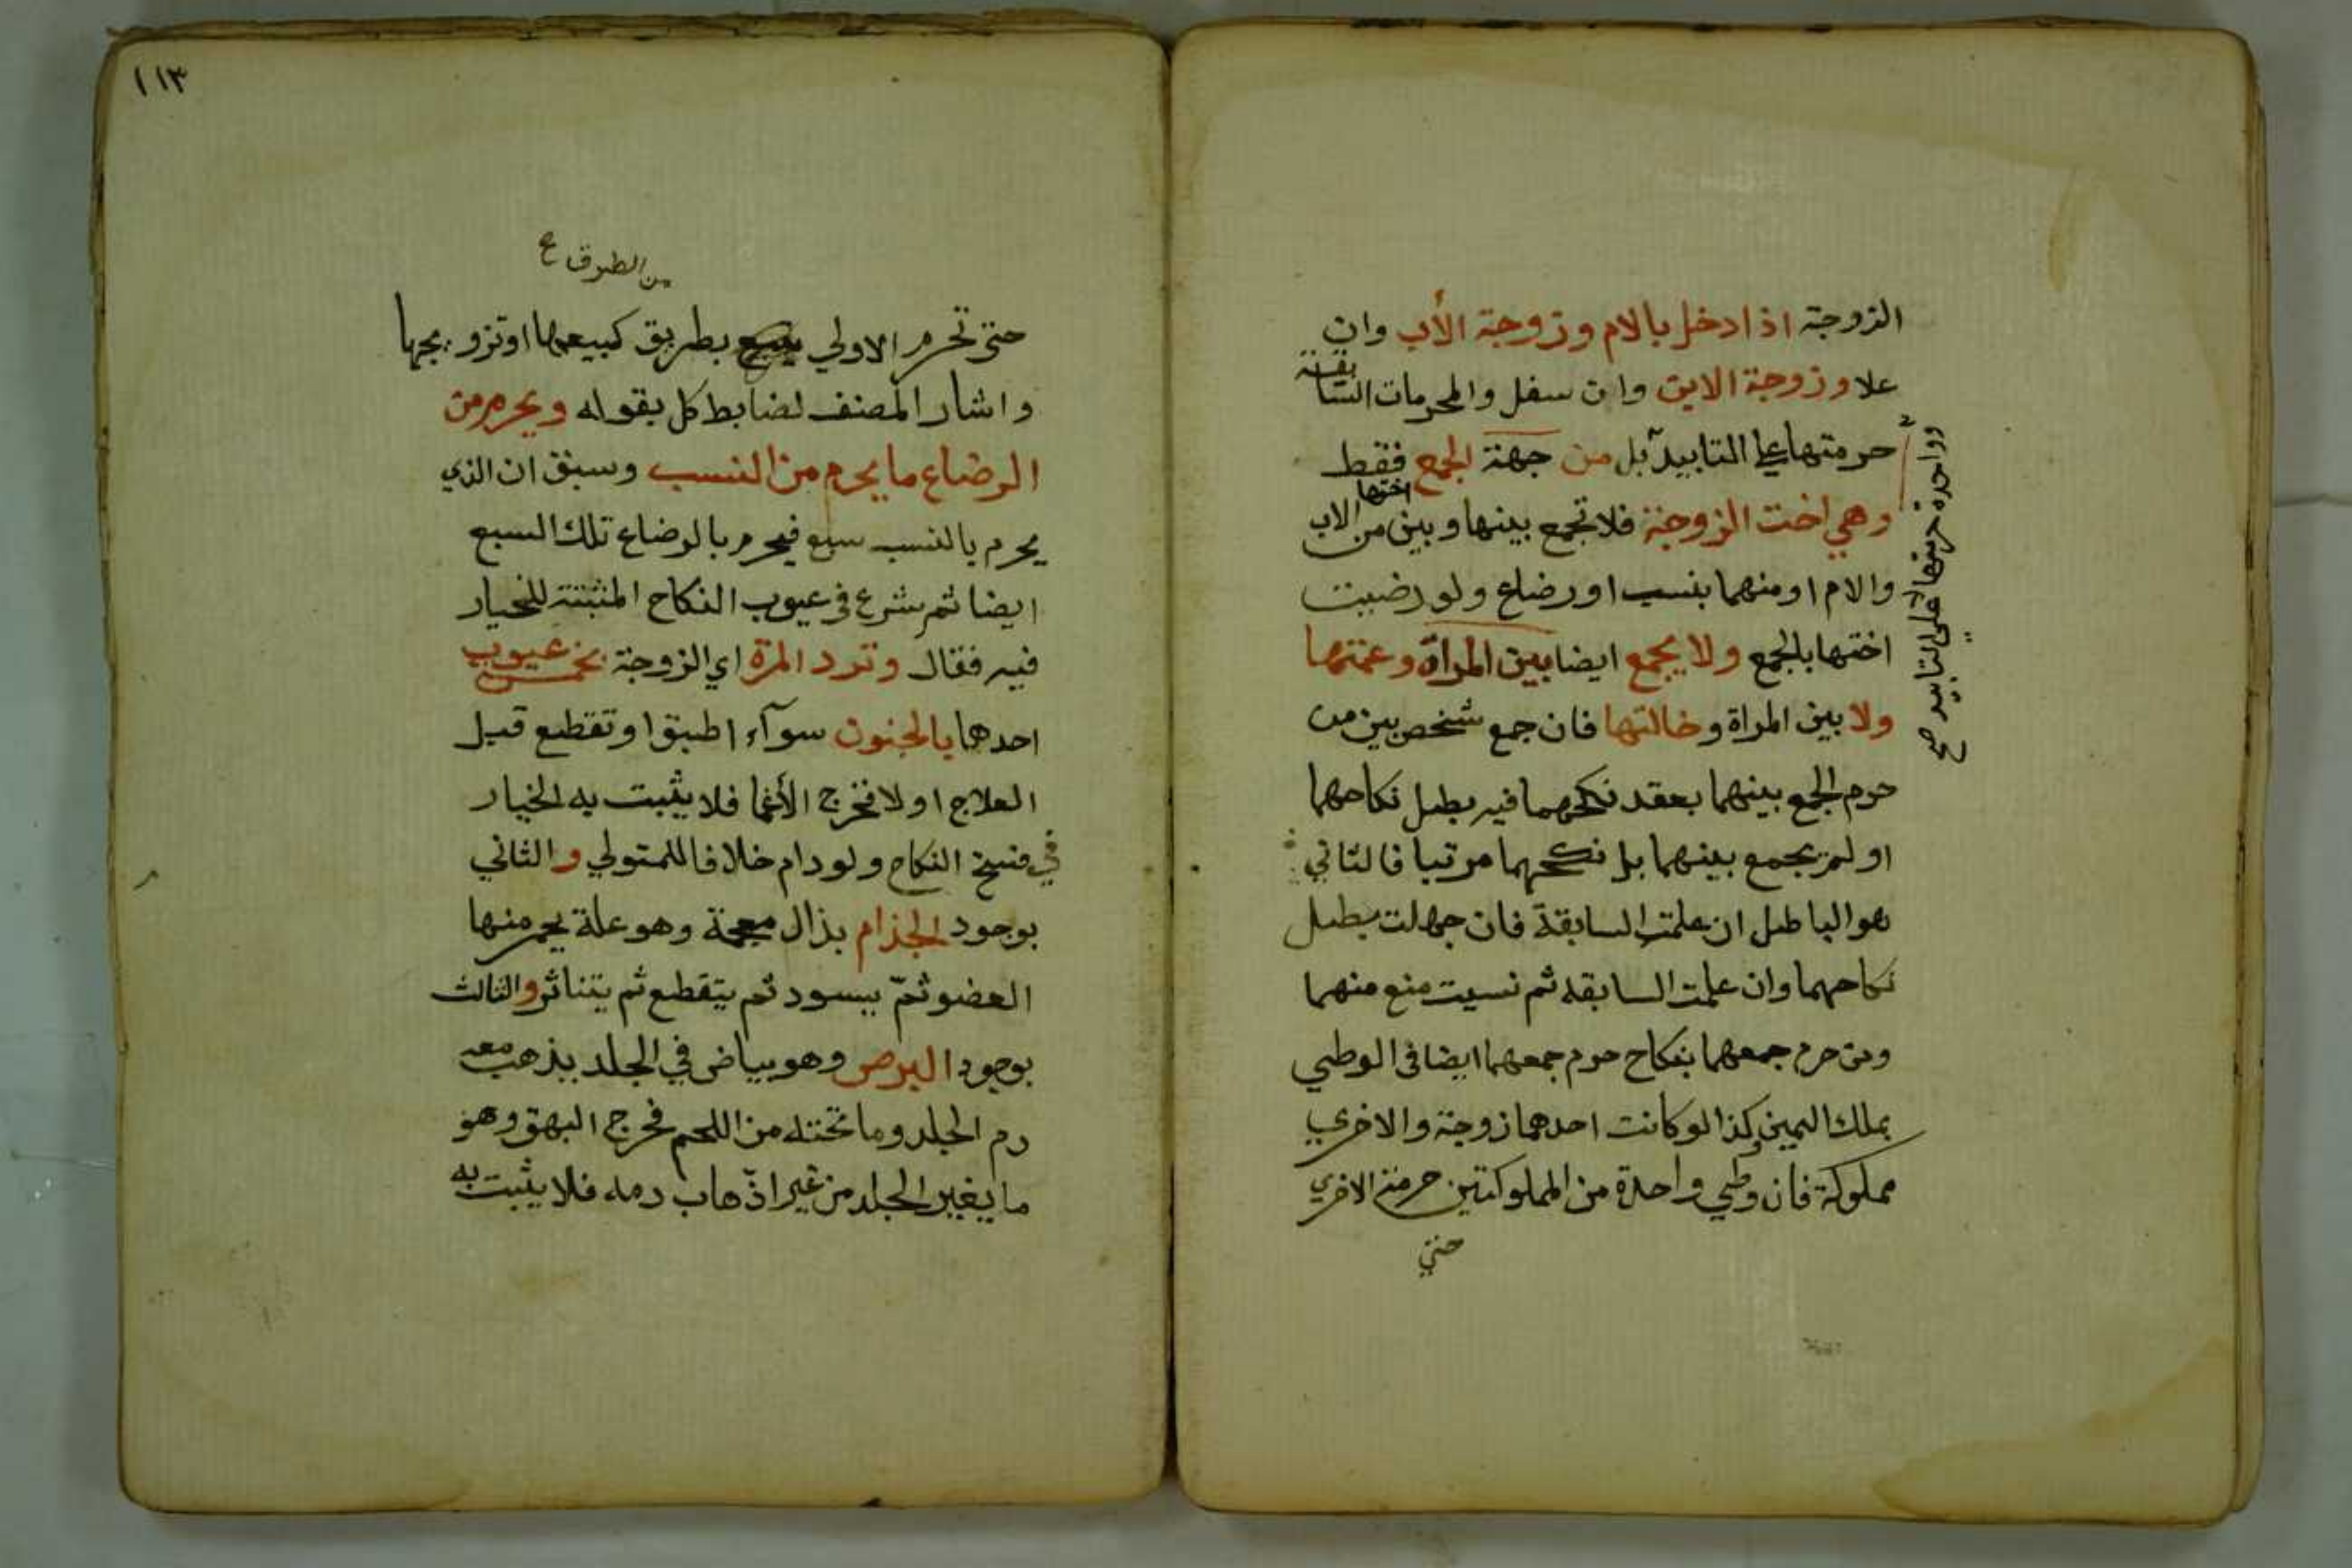 الزوجة اذا دخل بالام وزوجة الأب وان
علا وزوجة الابن وان سفل والمحرمات السابقة
حرمتها على التابيد بل من جهة الجمع فقط
وواحدة حرمتها على التابيد صح
وهي اخت الزوجة فلا تجمع بينها وبين اختها من الاب
والام او منهما بنسب او رضاع ولو رضيت
اختها بالجمع ولا يجمع ايضا بين المراة وعمتها
ولا بين المراة وخالتها فان جمع شخص بين من
حرم الجمع بينهما بعقد نكحهما فيه بطل نكاحهما
او لم يجمع بينهما بل نكحهما مرتبا فالثاني
هو الباطل ان علمت السابقة فان جهلت بطل
نكاحهما وان علمت السابقه ثم نسيت منع منهما
ومن حرم جمعهما بنكاح حرم جمعهما ايضا في الوطي
بملك اليمين كذا لو كانت احدهما زوجة والاخري
مملوكة فان وطي واحدة من المملوكتين حرمت الاخري
حتي
١١٣
من الطرق ع
حتى تحرم الاولي بطريق كبيعها او تزويجها
واشار المصنف لضابط كل بقوله ويحرم من
الرضاع ما يحرم من النسب وسبق ان الذي
يحرم بالنسب سبع فيحرم بالرضاع تلك السبع
ايضا ثم شرع في عيوب النكاح المثبتة للخيار
فيه فقال وترد المرة اي الزوجة بخمس عيوب
احدها بالجنون سوآء اطبق او تقطع قبل
العلاج او لا فخرج الأغما فلا يثبت به الخيار
في فسخ النكاح ولو دام خلافا للمتولي والثاني
بوجود الجذام بذال معجمة وهو علة يحمر منها
العضو ثمّ يسود ثم يتقطع ثم يتناثر والثالث
بوجود البرص وهو بياض في الجلد يذهب معه
دم الجلد وما تحته من اللحم فخرج البهق وهو
ما يغير الجلد من غير اذهاب دمه فلا يثبت به